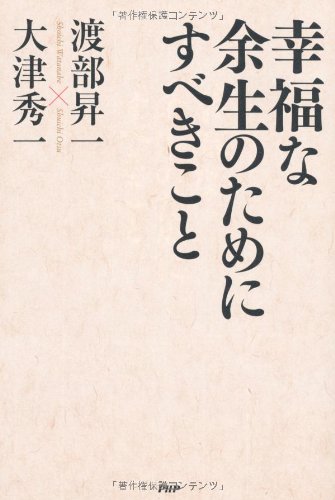 「著作権保護コンテンツ」
幸福な
余生のために
すべきこと
渡部昇一
Shoichi Watanabe
×
大津秀一
Shuichi Otsu
「著作権保護コンテンツ」
PHP